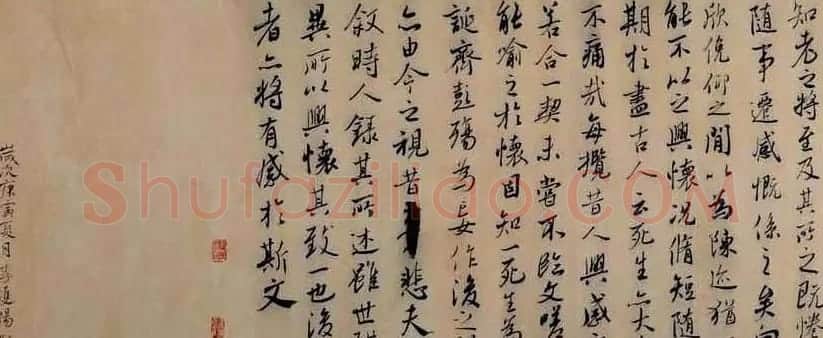 知老之将至及其所之既惓
随事遷感慨係之矣向
欣俛仰之閒以為陳迹猶
能不以之興懷况脩短随
期於盡古人云死生亦大
不痛哉每攬昔人興感
若合一契未嘗不臨文嗟
能喻之於懷固知一死生為
誕齊彭殤為妄作後之
亦由今之視昔悲夫
敘時人録其所述雖世
異所以興懷其致一也後
者亦將有感於斯文
歲次庚寅夏月
Shufaziliao.COM